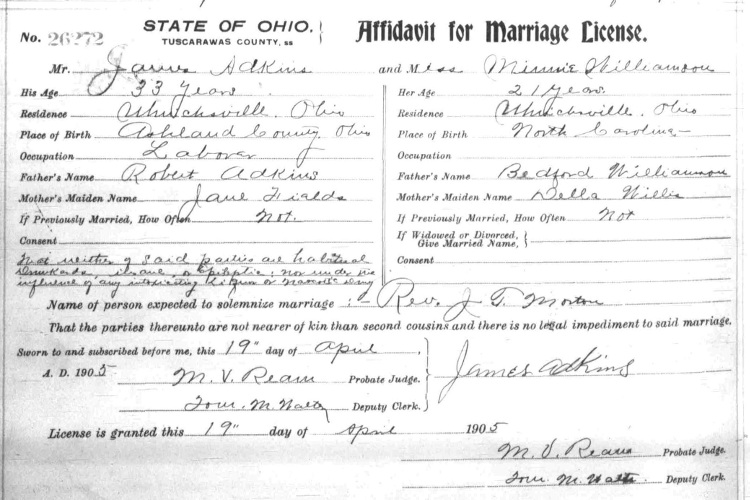 No. 26272 STATE OF OHIO. } Affidavit for Marriage License.
TUSCARAWAS COUNTY, ss
Mr. James Adkins and Miss Minnie Williamson
His Age 33 Years Her Age 21 Years
Residence Uhrichsville, Ohio Residence Uhrichsville, Ohio
Place of Birth Ashland County Ohio Place of Birth North Carolina
Occupation Laborer Occupation
Father's Name Robert Adkins Father's Name Bedford Williamson
Mother's Maiden Name Jane Fields Mother's Maiden Name Della Willis
If Previously Married, How Often Not. If Previously Married, How Often Not
Consent If Widowed or Divorced, Give Married Name, {
Consent
That neither of said parties are habitual
drunkards, insane, or epileptic; nor under the
influence of any intoxicating liquor or narcotic drug
Name of person expected to solemnize marriage :- Rev. J. T. Morton
That the parties thereunto are not nearer of kin than second cousins and there is no legal impediment to said marriage.
Sworn to and subscribed before me, this 19" day of April
A. D. 1905 James Adkins
M. V. Ream Probate Judge.
Tom. M. Deputy Clerk.
License is granted this 19" day of April 1905
M. V. Ream Probate Judge.
Tom. M. Deputy Clerk.